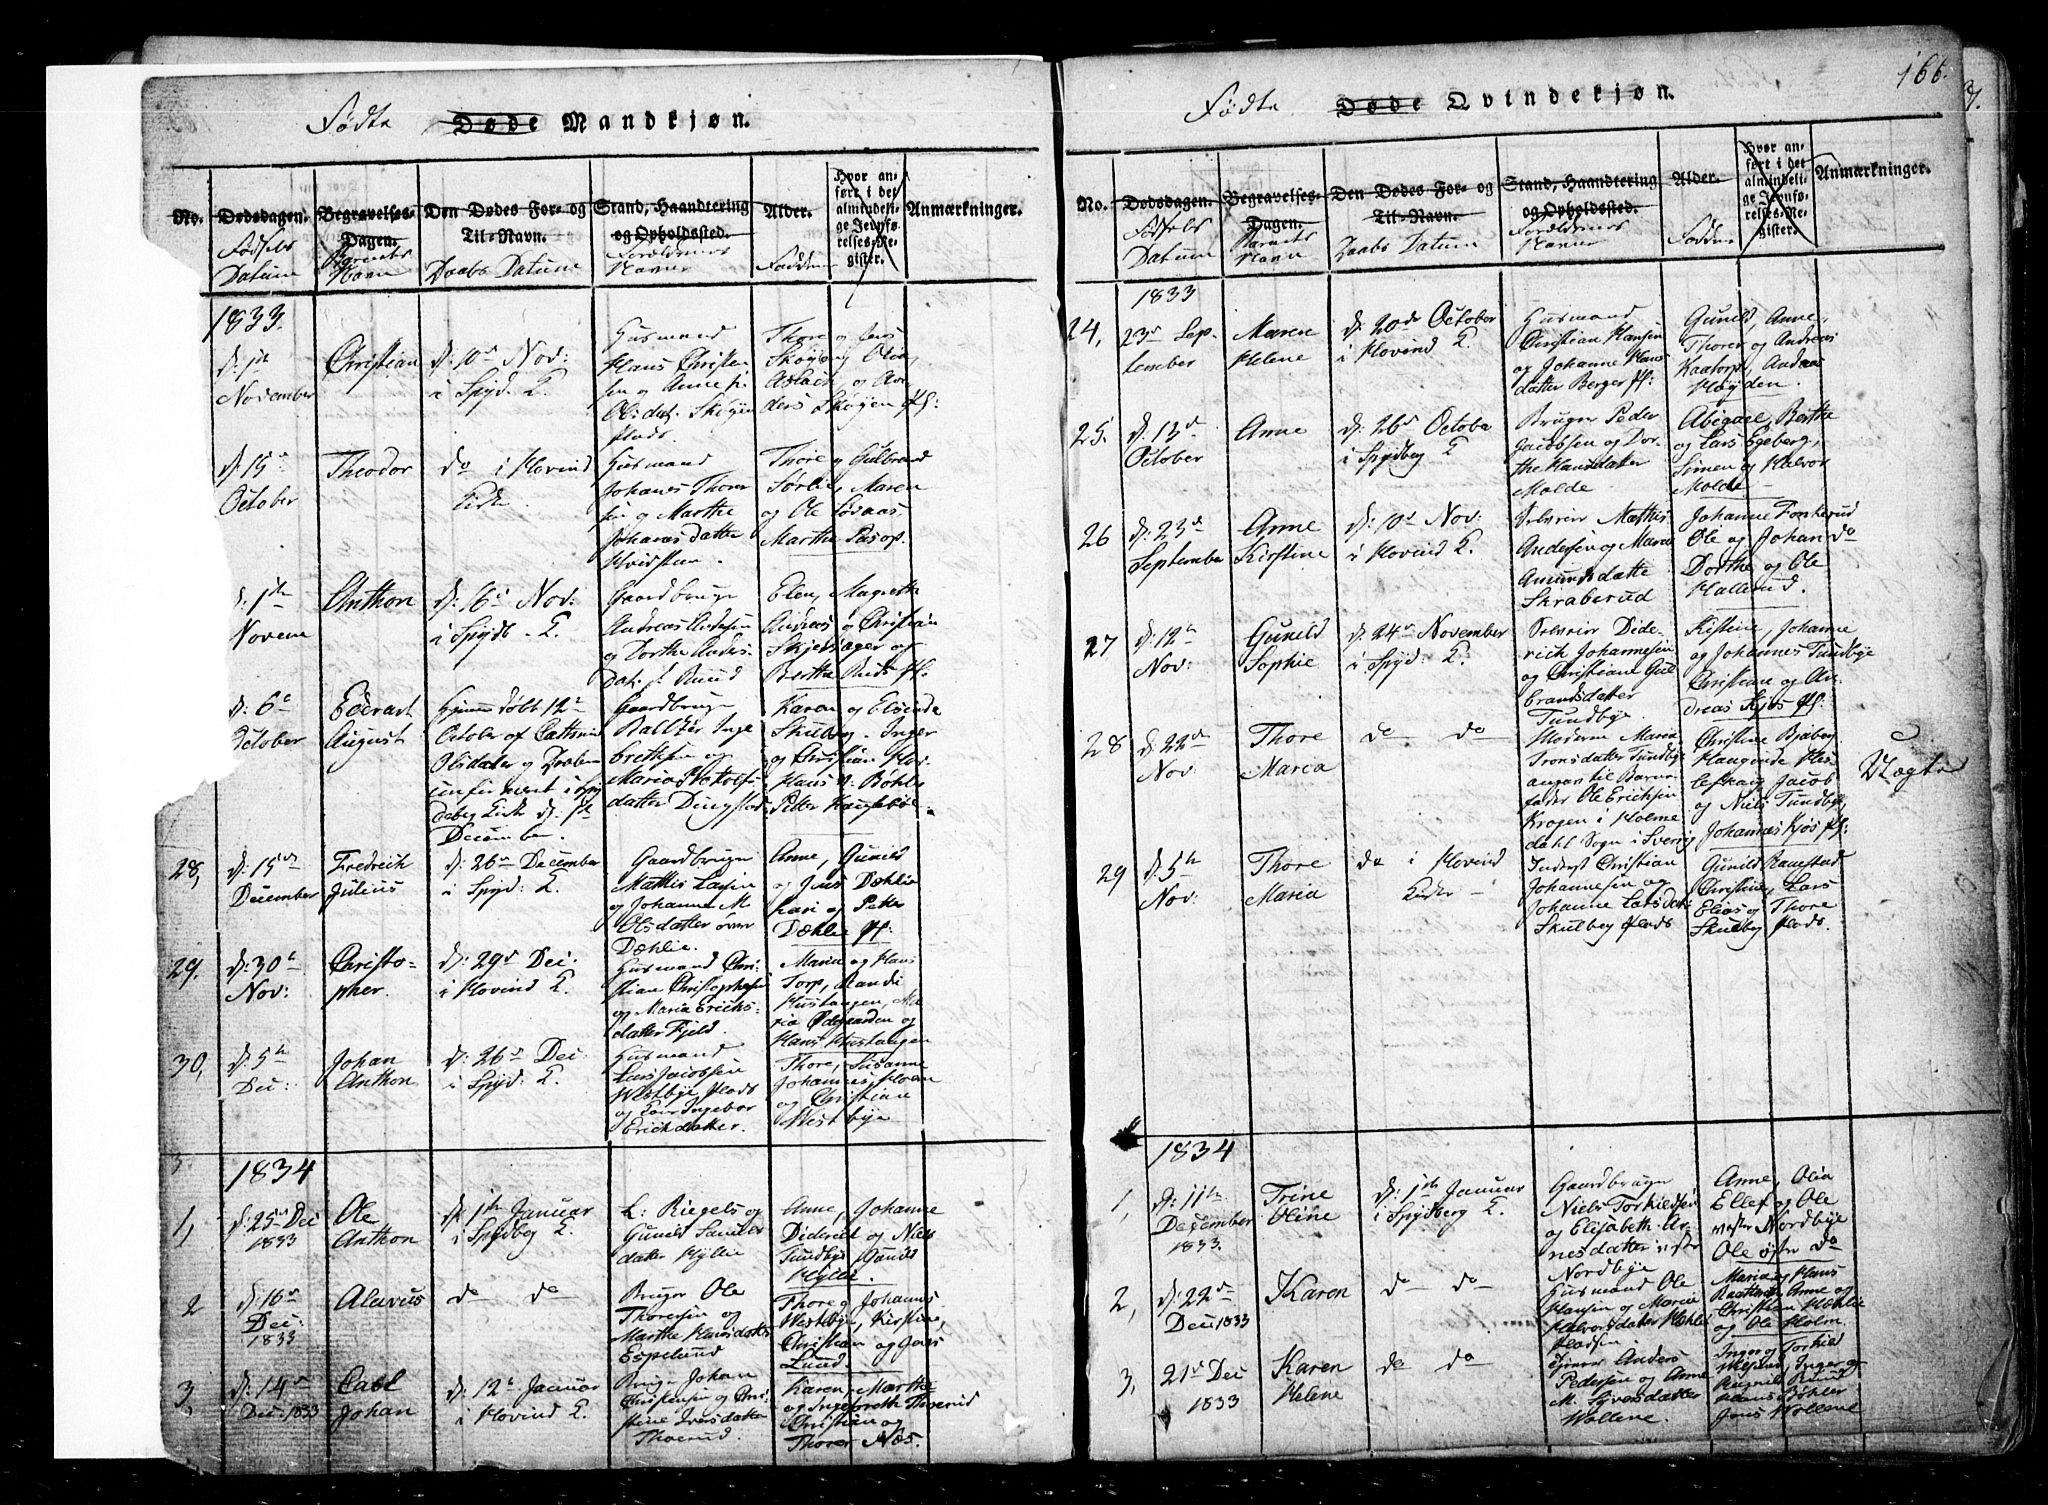 Födte Döde Mandkjøn.
No.
Dødsdagen.
Födsels
Datum
Begravelses-
Dagen.
Barnets
Navn
Den Dødes For- og
Til-Navn.
Daabs Datum
Stand, Haandtering
og Opholdssted.
Forældrenes
Navne
Alder.
Faddere
Hvor an-
ført i det
almindeli-
ge Jevnfø-
relses-Re-
gister.
Anmærkninger.
1833.
d: 1ste
November
Christian
d: 10de Nov:
i Spyd. K.
Husmand
Hans Christen
sen og Anne
Olsdat. Skøien
Plads.
Thore og Jens
Skøien, Olia
Aslach, og An-
ders Skøyen Pl:
d: 15de
October
Theodor
do i Hovind
Kirke
Husmand
Johanes Thore
sen og Marthe
Johanesdatter
Hvidsteen.
Thore og Gulbrand
Sørlie, Maren
og Ole Løvaas,
Marthe Pasop.
d: 1ste
Novem
Anthon
d: 16de Nov:
i Spydb. K.
Gaardbruger
Andreas Andersen
og Dorthe Anders
Dat: Ruud
Elen, Magrethe
Andreas og Christian
Skjersager og
Berthe Ruds Pl:
d: 6te
October
Edevart
August
Hjemmedøbt 12te
October af Cathrine
Olsdater og Daaben
confirmert i Spy
deberg Kirke d. 1ste
December.
Gaardbruger
Baltzer Inge
bretsen og
Maria
datter Dingstad
Karen og Elsende
Skulberg. Inger
og Christian Hov
Hans v. Bøhler
Petter
28,
d: 15de
December
Fredrich
Julius
d: 26de December
i Spyd: K.
Gaardbruger
Mathis Larsen
og Johanne M.
Olsdatter øvre
Dæhlie.
Anne, Gunild
og Jens Dæhlie
Kari og Petter
Dæhlie Pl:
29.
d: 30te
Nov:
Christo-
pher.
d: 29de Dec:
i Hovind K.
Husmand Chri-
stian Christophersen
og Maria Ericks-
datter Fjeld.
Maria og Hans
Torp, Randi
Hustangen, Ma
ria Ødegaarden og
Hans Hustangen
30,
d: 5te
Dec:
Johan
Anthon
d: 26de Dec:
i Spyd: K.
Husmand
Lars Jacobsen
Westbye Plads
og Kone Ingebor
Erichdatter.
Thore, Susanne
Johannes, Hoen
og Christian
Westbye
1834
1,
d: 25de Dec
1833
Ole
Anthon
d: 1ste Januar
i Spydberg K.
L: Riegels og
Gunild Samuels
datter Hyllie
Anne, Johanne
Diderich og Niels
Tundbye
Hyllie.
2
d: 16de
Dec:
1833
Alavus
do do
Bruger Ole
Thoresen og
Marthe Hansdatter
Espelund
Thore og Johanes
Westbye, Kirstine,
Christian og Jens
Lund
3.
d: 14de
Dec: 1833
Carl
Johan
d: 12te Januar
i Hovind K.
Bruger Johan
Christensen og Chri
stine Iversdatter
Thoerud.
Karen, Marthe
og Ingebreth Thoerud
Christian og
Thorer Næs.
166.
Födte Döde Qvindekjøn.
No.
Dødsdagen.
Födsels
Datum
Begravelses-
Dagen.
Barnets
Navn
Den Dødes For- og
Til-Navn.
Daabs Datum
Stand, Haandtering
og Opholdssted.
Forældrenes
Navne
Alder.
Faddere
Hvor an-
ført i det
almindeli-
ge Jevnfø-
relses-Re-
gister.
Anmærkninger.
1833
24,
23de Sep-
tember
Maren
Helene
d: 20de October
i Hovind K.
Husmand
Christian Hansen
og Johanne Hans
datter Berger Pl:
Gunild, Anne,
Thorer og Andreas
Kaatorp, Andreas
Høyden.
25.
d: 13de
October
Anne
d: 26de October
i Spydberg K
Bruger Peder
Jacobsen og Dor-
the Hansdatter
Molde
Abigael, Berthe
og Lars Egeberg,
Simen og Halvor
Molde
26
d: 23de
September
Anne
Kirstine
d: 10de Nov:
i Hovind K.
Selveier Mathis
Andersen og Maria
Amundsdatte
Skraberud
Johanne Fonkerud
Ole og Johan do
Dorthe og Ole
Hallerud.
27
d: 12te
Nov:
Gunild
Sophie
d: 24de November
i Spyd: K.
Selveier Dide-
rich Johannesen
og Christiane Gul
brandsdatter
Tundbye
Kistine, Johanne
og Johannes Tundbye
Christian og An-
dreas Kjøs Pl:
28
d: 22de
Nov:
Thore
Maria
do do
Moderen Maria
Tronsdatter Tundbye
angav til Barne
fader Ole Erichsen
Krogen i Holme
dahl Sogn i Sverig
Christine Bjaberg
Haugende Hes-
lefraig Jacob
og Niels Tundbye,
Johannes Kjøs Pl:
Uægte
29
d: 5te
Nov:
Thore
Maria
do i Hovind
Kirke
Inderst Christian
Johannesen og
Johanne Larsdat:
Skulberg Plads
Gunild Ramstad
Christine, Lars
Elias og Thore
Skulberg Plads.
1834
1,
d: 11te
December
1833.
Trine
Oline
d: 1ste Januar
i Spydberg K.
Gaardbruger
Niels Torkildsen
og Elisabeth Ar-
nesdatter vestre
Nordbye
Anne, Olia
Ellef og Ole
vestre Nordbye
Ole østre do
2,
d: 22de
Dec: 1833
Karen
do do
Husmand Ole
Hansen og Maria
Halvorsdatter Hæhlie
Pladsen
Maria og Hans
Anne og
Christian Hæhlie
og Ole Holm.
3,
21de Dec
1833
Karen
Helene
do do
Anders
Pedersen og Anne
M. Syversdatter
Wollene.
Inger og Torkild
Inger og
Hans Bøhler
Jens Wollene